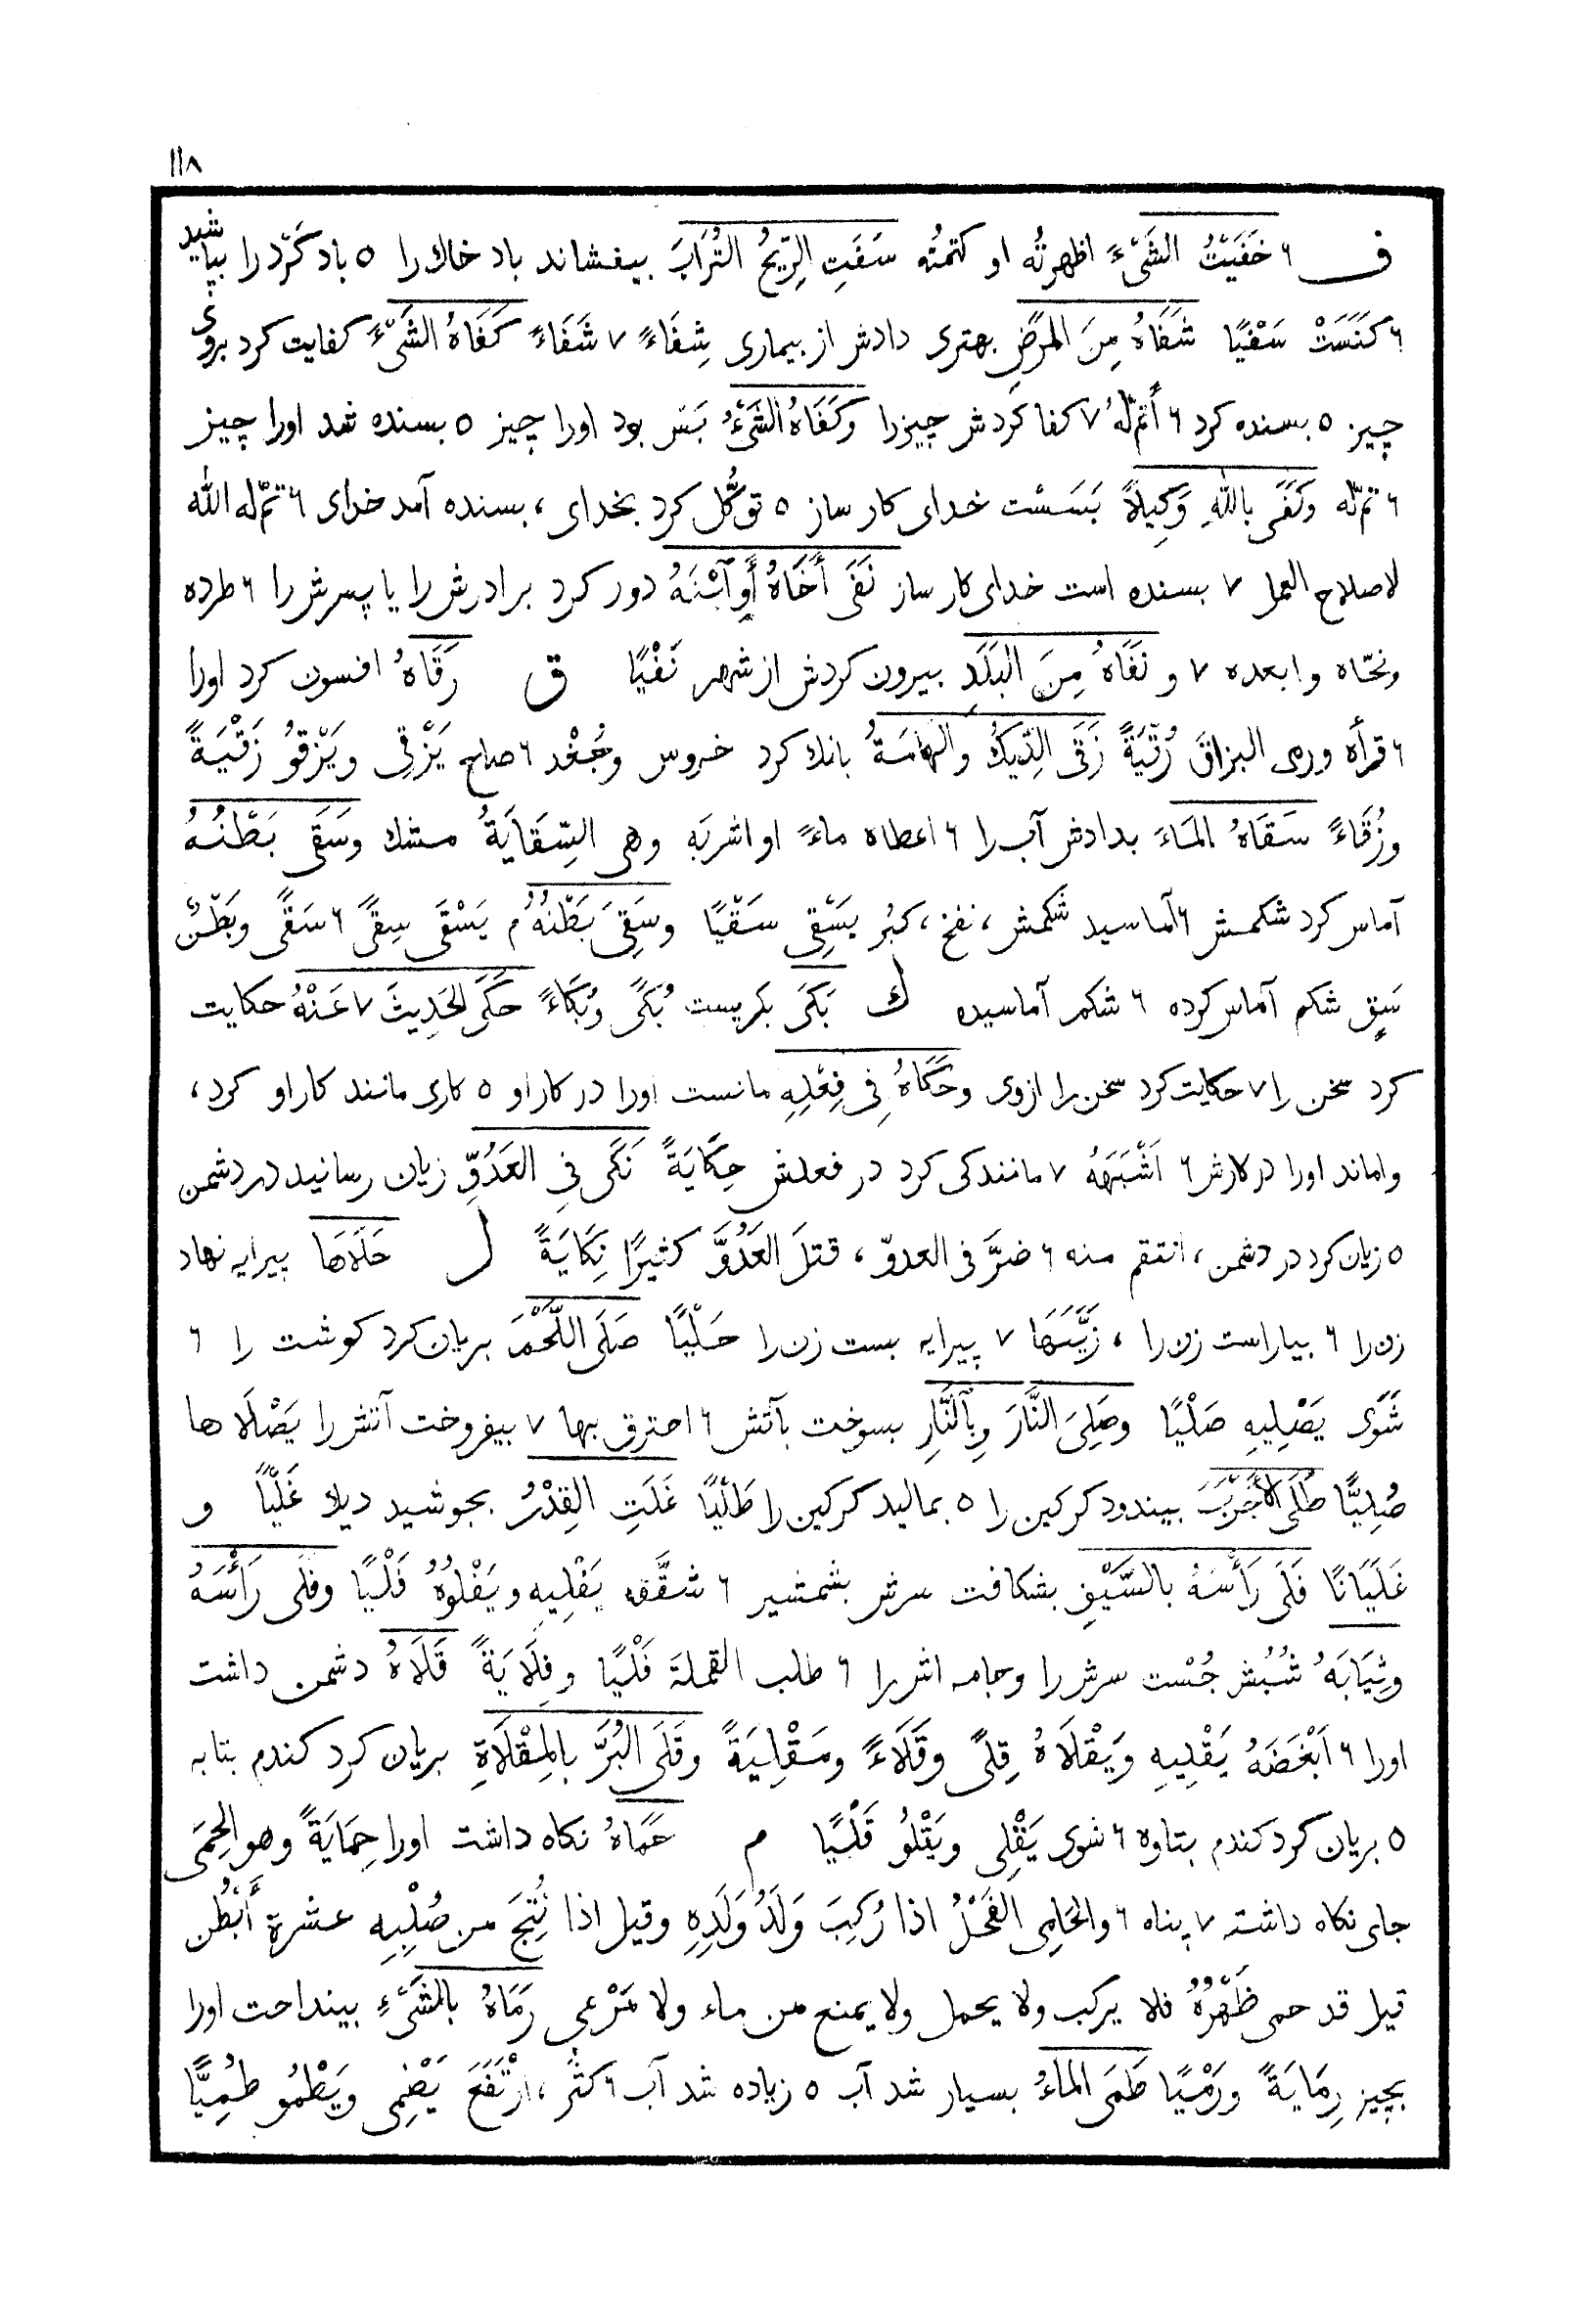 ١١٨
ف ٦ خَفَيْتُ الشَىْءَ اظهرتُه او كتمتُه سَفَتِ الرِّيحُ التُرَابَ بيفشاند باد خاك را ٥ باد كَرْد را بپاشيد
٦ كَنَسَتْ سَفْيًا شَفَاهُ مِنَ المَرَضِ بهترى دادش از بيمارى شِفَاءً ٧ شَفَاءً كَفَاهُ الشَىْءَ كفايت كرد بروى
چيز ٥ بسنده كرد ٦ أتمّ لهُ ٧ كفا كردش چيزرا وكَفَاهُ الشَىْءُ بَسْ بود اورا چيز ٥ بسنده شد اورا چيز
٦ تمّ له وكَفَى بِاللهِ وَكِيلاً بَسَسْت خداى كار ساز ٥ توكُّل كرد بخداى ، بسنده آمد خداى ٦ تمّ له الله
لاصلاح العمل ٧ بسنده است خداى كار ساز نَفَى أَخَاهُ أَوِ ٱبْنَهُ دور كرد برادرش را يا پسرش را ٦ طرده
ونحّاه وابعده ٧ و نَفَاهُ مِنَ البَلَدِ بيرون كردش از شهر نَفْيًا ق رَقَاهُ افسون كرد اورا
٦ قرأه ورمى البزاقَ رُقْيَةً زَقَى الدِّيكُ والهَامَةُ بانك كرد خروس وجُغْد ٦ صاح يَزْقِى ويَزْقُو زَقْيَةً
وزُقَاءً سَقَاهُ المَاءَ بدادش آب را ٦ اعطاه ماءً او اشربَه وهى السِّقَايَةُ مشك وسَقَى بَطْنُهُ
آماس كرد شكمش ٦ آماسيد شكمش ، نفخ ، كبُر يَسْقِى سَقْيًا وسَقِىَ بَطْنُهُ م يَسْقَى سِقىً ٦ سَقىً وبَطْنٌ
سَقٍ شكم آماس كرده ٦ شكم آماسيده ك بَكَى بكريست بُكىً وبُكَاءً حَكَى الحَدِيثَ ٧ عَنْهُ حكايت
كرد سخن را ٧ حكايت كرد سخن را ازوى وحَكَاهُ فِى فِعْلِهِ مانست اورا در كار او ٥ كارى مانند كار او كرد ،
واماند اورا در كارش ٦ اَشْبَهَهُ ٧ مانندكى كرد در فعلش حِكَايَةً نَكَى فِى العَدُوِّ زيان رسانيد در دشمن
٥ زيان كرد در دشمن ، انتقم منه ٦ ضرَّ فى العدوّ ، قتلَ العَدُوَّ كثيرًا نِكَايَةً ل حَلَاهَا پيرايه نهاد
زن را ٦ بياراست زن را ، زَيَّنَهَا ٧ پيرايه بست زن را حَلْيًا صَلَى اللَّحْمَ بريان كرد كوشت را ٦
شَوَى يَصْلِيهِ صَلْيًا وصَلِىَ النَّارَ وبِٱلنَّارِ بسوخت بآتش ٦ احترق بها ٧ بيفروخت آتش را يَصْلَاها
صُلِيًّا طَلَى الأَجْرَبَ بيندود كركين را ٥ بماليد كركين را طَلْيًا غَلَتِ القِدْرُ بجوشيد ديك غَلْيًا و
غَلَيَانًا فَلَى رَأْسَهُ بالسَّيْفِ بشكافت سرش بشمشير ٦ شقَّقه يَفْلِيهِ ويَفْلُوهُ فَلْيًا وفَلَى رَأْسَهُ
وثِيَابَهُ شُبُش جُسْت سرش را وجامه اش را ٦ طلب القملةَ فَلْيًا وفِلَايَةً قَلَاهُ دشمن داشت
اورا ٦ اَبْغَضَهُ يَقْلِيهِ ويَقْلَاهُ قِلىً وقَلَاءً ومَقْلِيَةً وقَلَى البُرَّ بالمِقْلَاةِ بريان كرد كندم بتابه
٥ بريان كرد كندم بتاوه ٦ شوى يَقْلِى ويَقْلُو قَلْيًا م حَمَاهُ نكاه داشت اورا حِمَايَةً وهو الحِمَى
جاى نكاه داشته ٧ پناه ٦ والحَامِى الفَحْلُ اذا رُكِبَ وَلَدُ وَلَدِهِ وقيل اذا نُتِجَ من صُلْبِهِ عشرة أَبْطُن
قيل قد حمى ظَهْرُهُ فلا يركب ولا يحمل ولا يمنع من ماء ولا مَرْعى رَمَاهُ بالشَىْءِ بينداخت اورا
بچيز رِمَايَةً ورَمْيًا طَمَى المَاءُ بسيار شد آب ٥ زياده شد آب ٦ كثُر ، ارْتَفَعَ يَطْمِى ويَطْمُو طُمِيًّا